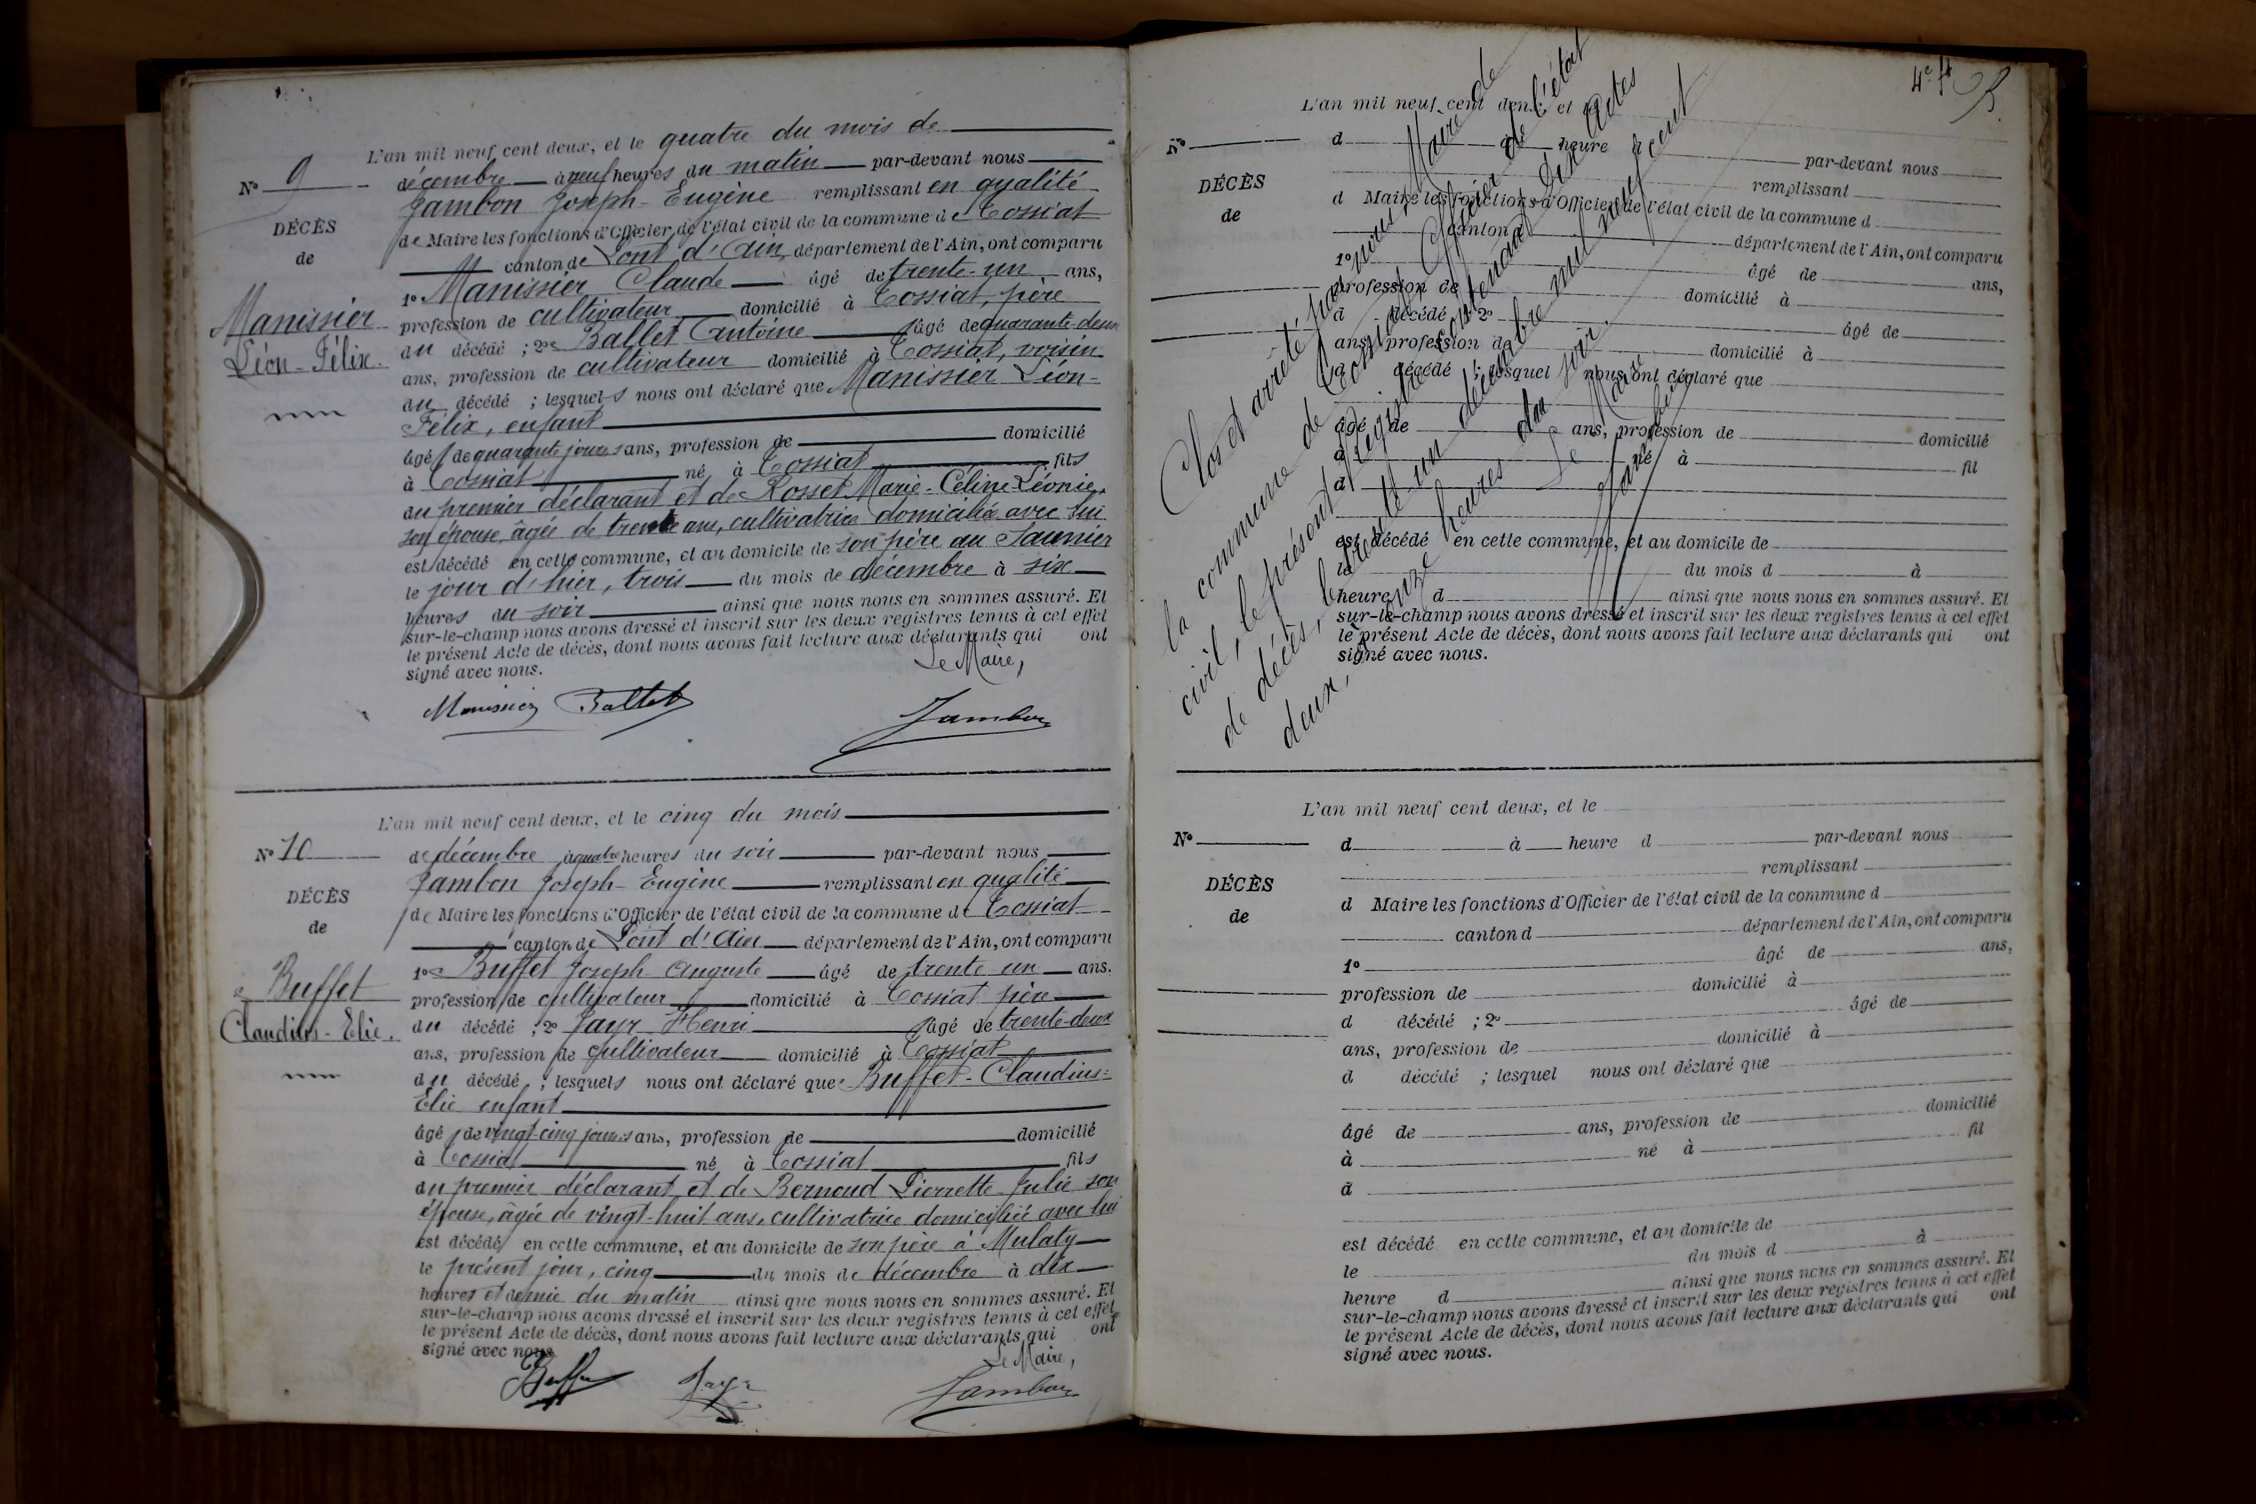 L'an mil neuf cent deux, et le quatre du mois de
N° 9
décembre à neuf heures du matin par-devant nous
Jambon Joseph-Eugène remplissant en qualité
DÉCÈS
de Maire les fonctions d'Officier de l'état civil de la commune de Tossiat
de
canton de Pont d'Ain, département de l'Ain, ont comparu
1° Manissier Claude âgé de trente-un ans,
Manissier
Léon-Félix.
profession de cultivateur domicilié à Tossiat, père
du décédé ; 2° Ballet Antoine âgé de quarante-deux
ans, profession de cultivateur domicilié à Tossiat, voisin
du décédé ; lesquels nous ont déclaré que Manissier Léon-
Félix, enfant
âgé de quarante jours ans, profession de domicilié
à Tossiat né à Tossiat fils
du premier déclarant et de Rosset Marie-Céline Léonie,
son épouse, âgée de trente ans, cultivatrice domiciliée avec lui
est décédé en cette commune, et au domicile de son père au Saunier
le jour d'hier, trois du mois de décembre à six
heures du soir ainsi que nous nous en sommes assuré. Et
sur-le-champ nous avons dressé et inscrit sur les deux registres tenus à cet effet
le présent Acte de décès, dont nous avons fait lecture aux déclarants qui ont
signé avec nous.
Le Maire,
Manissier Ballet Jambon
L'an mil neuf cent deux, et le cinq du mois
N° 10
de décembre à quatre heures du soir par-devant nous
Jambon Joseph-Eugène remplissant en qualité
DÉCÈS
de Maire les fonctions d'Officier de l'état civil de la commune de Tossiat
de
canton de Pont d'Ain département de l'Ain, ont comparu
1° Buffet Joseph Auguste âgé de trente un ans.
Buffet
Claudius-Elie.
profession de cultivateur domicilié à Tossiat père
du décédé ; 2° Jayr Henri âgé de trente-deux
ans, profession de cultivateur domicilié à Tossiat
du décédé ; lesquels nous ont déclaré que Buffet-Claudius-
Elie enfant
âgé de vingt-cinq jours ans, profession de domicilié
à Tossiat né à Tossiat fils
du premier déclarant et de Bernoud Pierrette Julie son
épouse, âgée de vingt-huit ans, cultivatrice domiciliée avec lui
est décédé en cette commune, et au domicile de son père à Mulaty
le présent jour, cinq du mois de décembre à dix
heures et demie du matin ainsi que nous nous en sommes assuré. Et
sur-le-champ nous avons dressé et inscrit sur les deux registres tenus à cet effet
le présent Acte de décès, dont nous avons fait lecture aux déclarants qui ont
signé avec nous.
Le Maire,
Buffet Jayr Jambon
4e f
L'an mil neuf cent deux, et le
N°
d à heure d par-devant nous
remplissant
DÉCÈS
d Maire les fonctions d'Officier de l'état civil de la commune d
de
canton d département de l'Ain, ont comparu
1° âgé de ans,
profession de domicilié à
d décédé ; 2° âgé de
ans, profession de domicilié à
d décédé ; lesquel nous ont déclaré que
âgé de ans, profession de domicilié
à né à fil
d
est décédé en cette commune, et au domicile de
le du mois d à
heure d ainsi que nous nous en sommes assuré. Et
sur-le-champ nous avons dressé et inscrit sur les deux registres tenus à cet effet
le présent Acte de décès, dont nous avons fait lecture aux déclarants qui ont
signé avec nous.
Clos et arrêté par nous, Maire de
la commune de Tossiat, Officier de l'état
civil, le présent Registre contenant dix actes
de décès, le trente un décembre mil neuf cent
deux, à onze heures du soir.
Le Maire
Jambon
L'an mil neuf cent deux, et le
N°
d à heure d par-devant nous
remplissant
DÉCÈS
d Maire les fonctions d'Officier de l'état civil de la commune d
de
canton d département de l'Ain, ont comparu
1° âgé de ans,
profession de domicilié à
d décédé ; 2° âgé de
ans, profession de domicilié à
d décédé ; lesquel nous ont déclaré que
âgé de ans, profession de domicilié
à né à fil
d
est décédé en cette commune, et au domicile de
le du mois d à
heure d ainsi que nous nous en sommes assuré. Et
sur-le-champ nous avons dressé et inscrit sur les deux registres tenus à cet effet
le présent Acte de décès, dont nous avons fait lecture aux déclarants qui ont
signé avec nous.